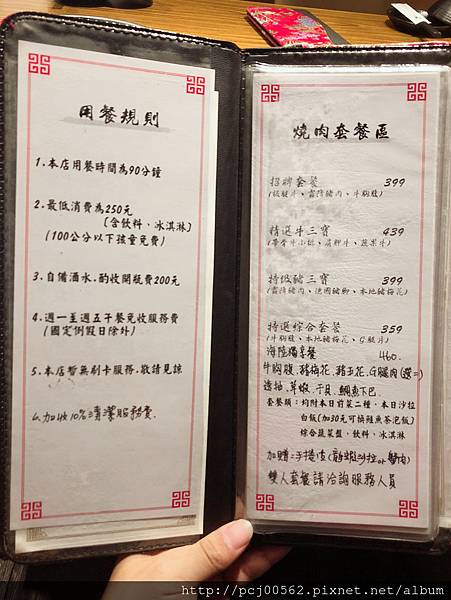 用餐規則
1.本店用餐時間為90分鐘
2.最低消費為250元
(含飲料、冰淇淋)
(100公分以下孩童免費)
3.自備酒水.酌收開瓶費200元
4.週一至週五午餐免收服務費
(國定例假日除外)
5.本店暫無刷卡服務.敬請見諒
加收10%清潔服務費
燒肉套餐區
招牌套餐 399
(板腱牛、霜降豬肉、牛胸腹)
精選牛三寶 439
(帶骨牛小排、肩胛牛、蔬果牛)
特級豬三寶 399
(霜降豬肉、德國豬腳、本地豬梅花)
特選綜合套餐 359
(牛胸腹、本地豬梅花、G腿片)
海陸獨享餐 460.
牛胸腹.豬梅花.豬五花.G腿肉(選二)
透抽.草蝦.干貝.鯛魚下巴
套餐類:均附本日前菜二種、本日沙拉
白飯(加30元可換鮭魚茶泡飯)
綜合蔬菜盤、飲料、冰淇淋
加贈
雙人套餐請洽詢服務人員
http://pcj00562.pixnet.net/album